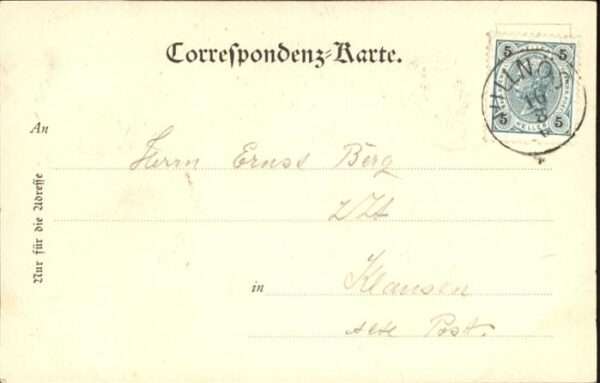 Correspondenz-Karte.
5 5
HELLER
5 5
An
Herrn Ernst Berg
in Klausen
Alte Post.
Nur für die Adresse